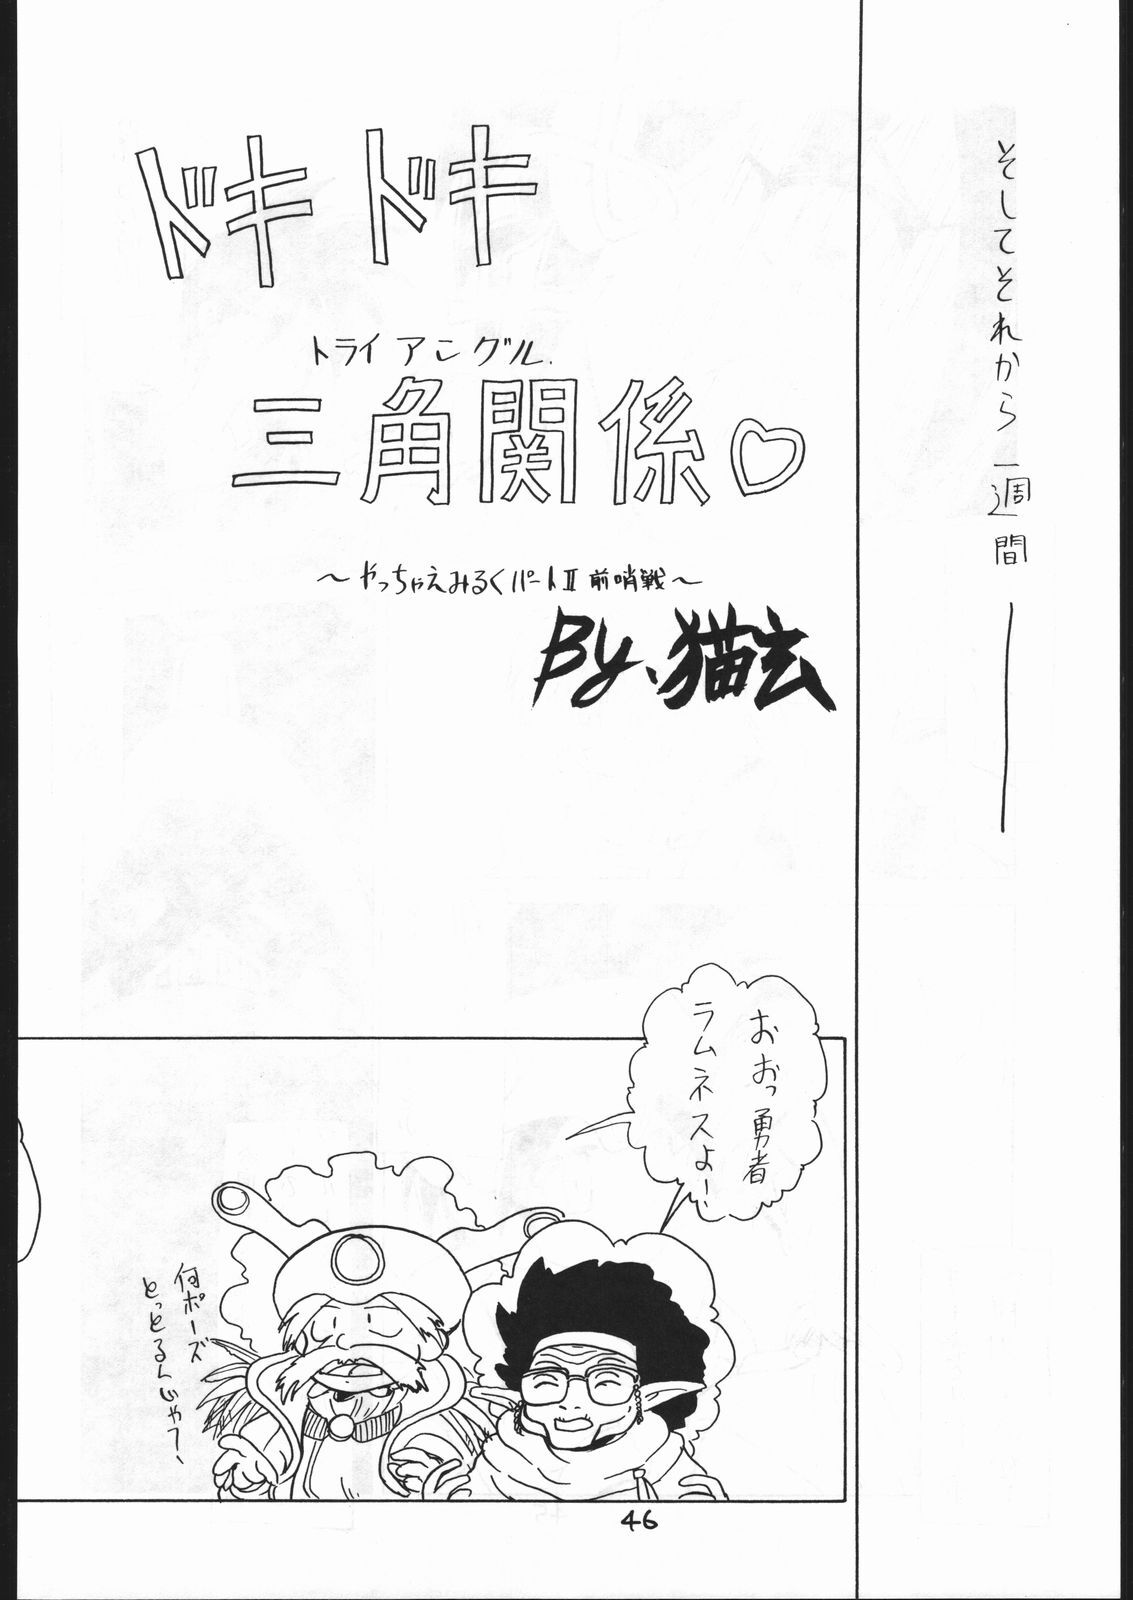 そしてそれから一週間
ドキドキ
トライアングル
三角関係♡
～やっちゃえみるくパートⅡ前哨戦～
By.猫玄
おおっ勇者
ラムネスよー
何ポーズ
とっとるんじゃて、
46